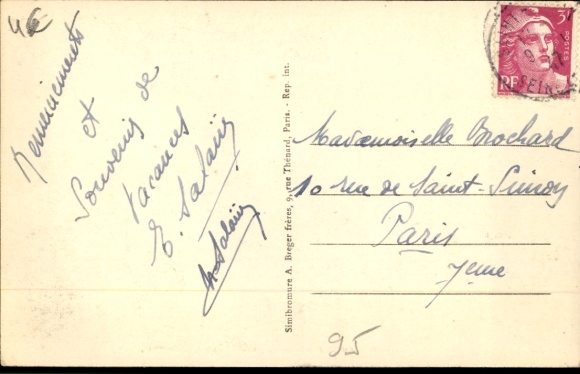 4€
Remerciements
et
Souvenirs de
Vacances
E. Salaün
M Salaün
Simibromure A. Breger frères, 9, rue Thénard, Paris. - Rep. int.
3F
POSTES
RF
SEINE
Mademoiselle Brochard
10 rue de Saint-Simon
Paris
7eme
95